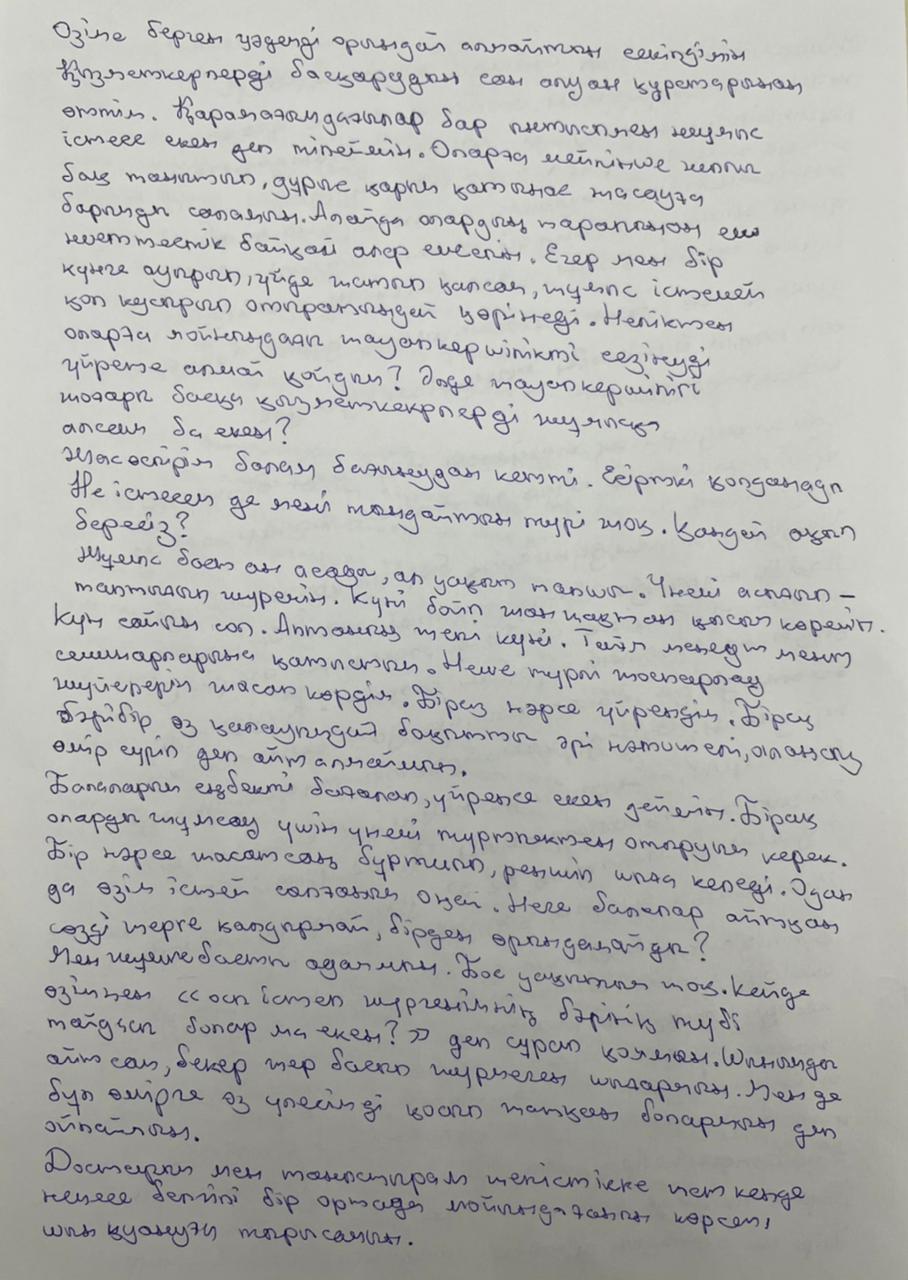 Өзіме берген уәдемді орындай алмайтын секілдімін
Қызметкерлерді басқарудың сан алуан курстарынан
өттім. Қарамағымдағылар бар ынтасымен жұмыс
істесе екен деп тілеймін. Оларға мейлінше жылы
бақ танытып, дұрыс қарым қатынас жасауға
барымды саламын. Алайда олардың тарапынан еш
ниеттестік байқай алар емеспін. Егер мен бір
күнге ауырып, үйде жатып қалсам, жұмыс істемей
қол қусырып отыратындай көрінеді. Неліктен
оларға мойнындағы жауапкершілікті сезінуді
үйрете алмай қойдым? Әлде жауапкершілігі
жоғары басқа қызметкекрлерді жұмысқа
алсам ба екен?
Жасөспірім балам бағынудан кетті. Есірткі қолданады
Не істесем де мені тыңдайтын түрі жоқ. Қандай ақыл
бересіз?
Жұмыс бастан асады, ал уақыт тапшы. Үнемі асығып –
таптығып жүремін. Күні бойы жан жақтан қысым көремін.
Күн сайын сол. Аптаның жеті күні. Тайм менеджмент
семинарларына қатыстым. Неше түрлі жоспарлау
жүйелерін жасап көрдім. Біраз нәрсе үйрендім. Бірақ
бәрібір өз қалауымдай бақытты әрі нәтижелі, алаңсыз
өмір сүріп деп айта алмаймын.
Балаларым еңбекті бағалап, үйренсе екен деймін. Бірақ
оларды жұмсау үшін үнемі түрткілектеп отыруым керек.
Бір нәрсе жасатсаң бұртиып, ренжіп шыға келеді. Одан
да өзім істей салғаным оңай. Неге балалар айтқан
сөзді жерге қалдырмай, бірден орындамайды?
Мен жұмысбасты адаммын. Бос уақытым жоқ. Кейде
өзімнен «осы істеп жүргенімнің бәрінің түбі
пайдасы болар ма екен?» деп сұрап қоямын. Шынымды
айтсам, бекер тер басып жүрмеген шығармын. Мен де
бұл өмірге өз үлесімді қосып жатқан болармын деп
ойлаймын.
Достарым мен таныстарым жетістікке жеткенде
немесе белгілі бір ортада мойындағанын көрсем,
шын қуануға тырысамын.